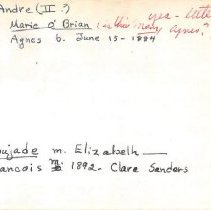 Andre (II?) yes - late
Marie O'Brian is this Mary Agnes?
Agnes b. June 15 - 1884
oujade m. Elizabeth
ancois m 1892 - Clare Sanders